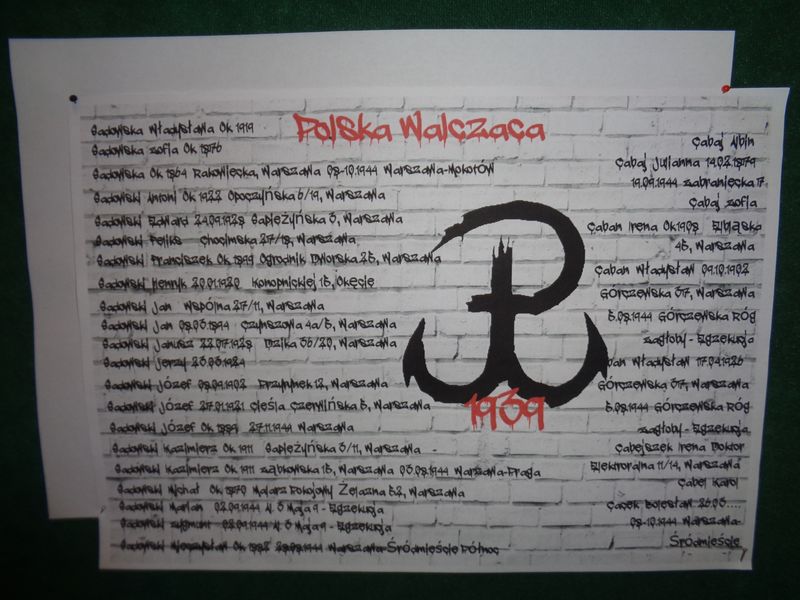 Polska Walcząca
Sadowska Władysława Ok 1919
Sadowska Zofia Ok 1876
Sadowska Ok 1864 Rakowiecka, Warszawa 08-10.1944 Warszawa-Mokotów
Sadowski Antoni Ok 1922 Opoczyńska 6/19, Warszawa
Sadowski Edward 24.09.1928 Sapieżyńska 3, Warszawa
Sadowski Feliks Chocimska 27/18, Warszawa
Sadowski Franciszek Ok 1899 Ogrodnik Dworska 25, Warszawa
Sadowski Henryk 20.01.1920 Konopnickiej 15, Okęcie
Sadowski Jan Wspólna 27/11, Warszawa
Sadowski Jan 08.03.1894 Czynszowa 4a/5, Warszawa
Sadowski Janusz 22.07.1928 36/20, Warszawa
Sadowski Jerzy 23.03.1924
Sadowski Józef 08.09.1902 Przyrynek 12, Warszawa
Sadowski Józef 27.01.1921 Cieśla Czerwińska 5, Warszawa
Sadowski Józef Ok 1884 27.11.1944 Warszawa
Sadowski Kazimierz Ok 1911 Sapieżyńska 3/11, Warszawa
Sadowski Kazimierz Ok 1911 Ząbkowska 15, Warszawa 03.08.1944 Warszawa-Praga
Sadowski Michał Ok 1870 Malarz Pokojowy Żelazna 52, Warszawa
Sadowski Marian 02.09.1944 Al 3 Maja 9 - Egzekucja
Sadowski Zygmunt 02.09.1944 Al 3 Maja 9 - Egzekucja
Sadowski Mieczysław Ok 1882 Warszawa-Śródmieście Północ
1939
Cabaj Albin
Cabaj Julianna 14.02.1879
19.09.1944 Zabraniecka 17
Cabaj Zofia
Caban Irena Ok1908 Elbląska
45, Warszawa
Caban Władysław 09.10.1902
Górczewska 37, Warszawa
5.08.1944 Górczewska Róg
Zagłoby - Egzekucja
ban Władysław 17.04.1926
Górczewska 37, Warszawa
5.08.1944 Górczewska Róg
Zagłoby - Egzekucja
Cabejszek Irena Doktor
Elektoralna 11/14, Warszawa
Cabel Karol
Cacek Bolesław 26.03....
08-10.1944 Warszawa-
Śródmieście